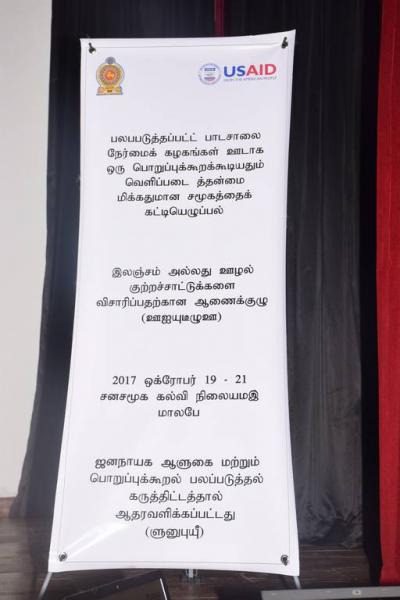 USAID
FROM THE AMERICAN PEOPLE
பலபபடுத்தப்பட்ட் பாடசாலை
நேர்மைக் கழகங்கள் ஊடாக
ஒரு பொறுப்புக்கூறக்கூடியதும்
வெளிப்படை த்தன்மை
மிக்கதுமான சமூகத்தைக்
கட்டியெழுப்பல்
இலஞ்சம் அல்லது ஊழல்
குற்றச்சாட்டுக்களை
விசாரிப்பதற்கான ஆணைக்குழு
(ஊஐயுடீழுஊ)
2017 ஒக்ரோபர் 19 - 21
சனசமூக கல்வி நிலையமஇ
மாலபே
ஜனநாயக ஆளுகை மற்றும்
பொறுப்புக்கூறல் பலப்படுத்தல்
கருத்திட்டத்தால்
ஆதரவளிக்கப்பட்டது
(ளுனுபுயுீ)